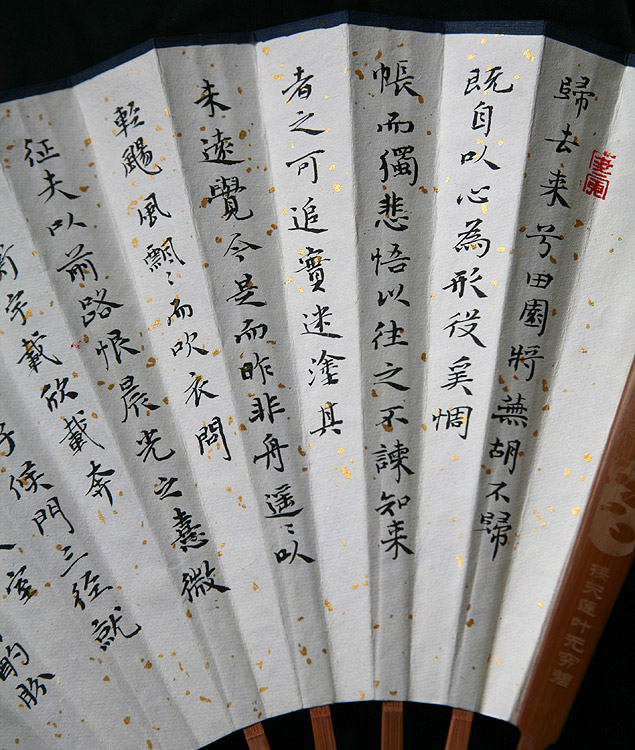 歸去来兮田園將蕪胡不歸
既自以心為形役奚惆
帳而獨悲悟以往之不諫知来
者之可追實迷塗其
未遠覺今是而昨非舟遥〻以
輕颺風飄〻而吹衣問
征夫以前路恨晨光之熹微
宇載欣載奔
候門三径就
室
酌眄
接天莲叶无穷碧